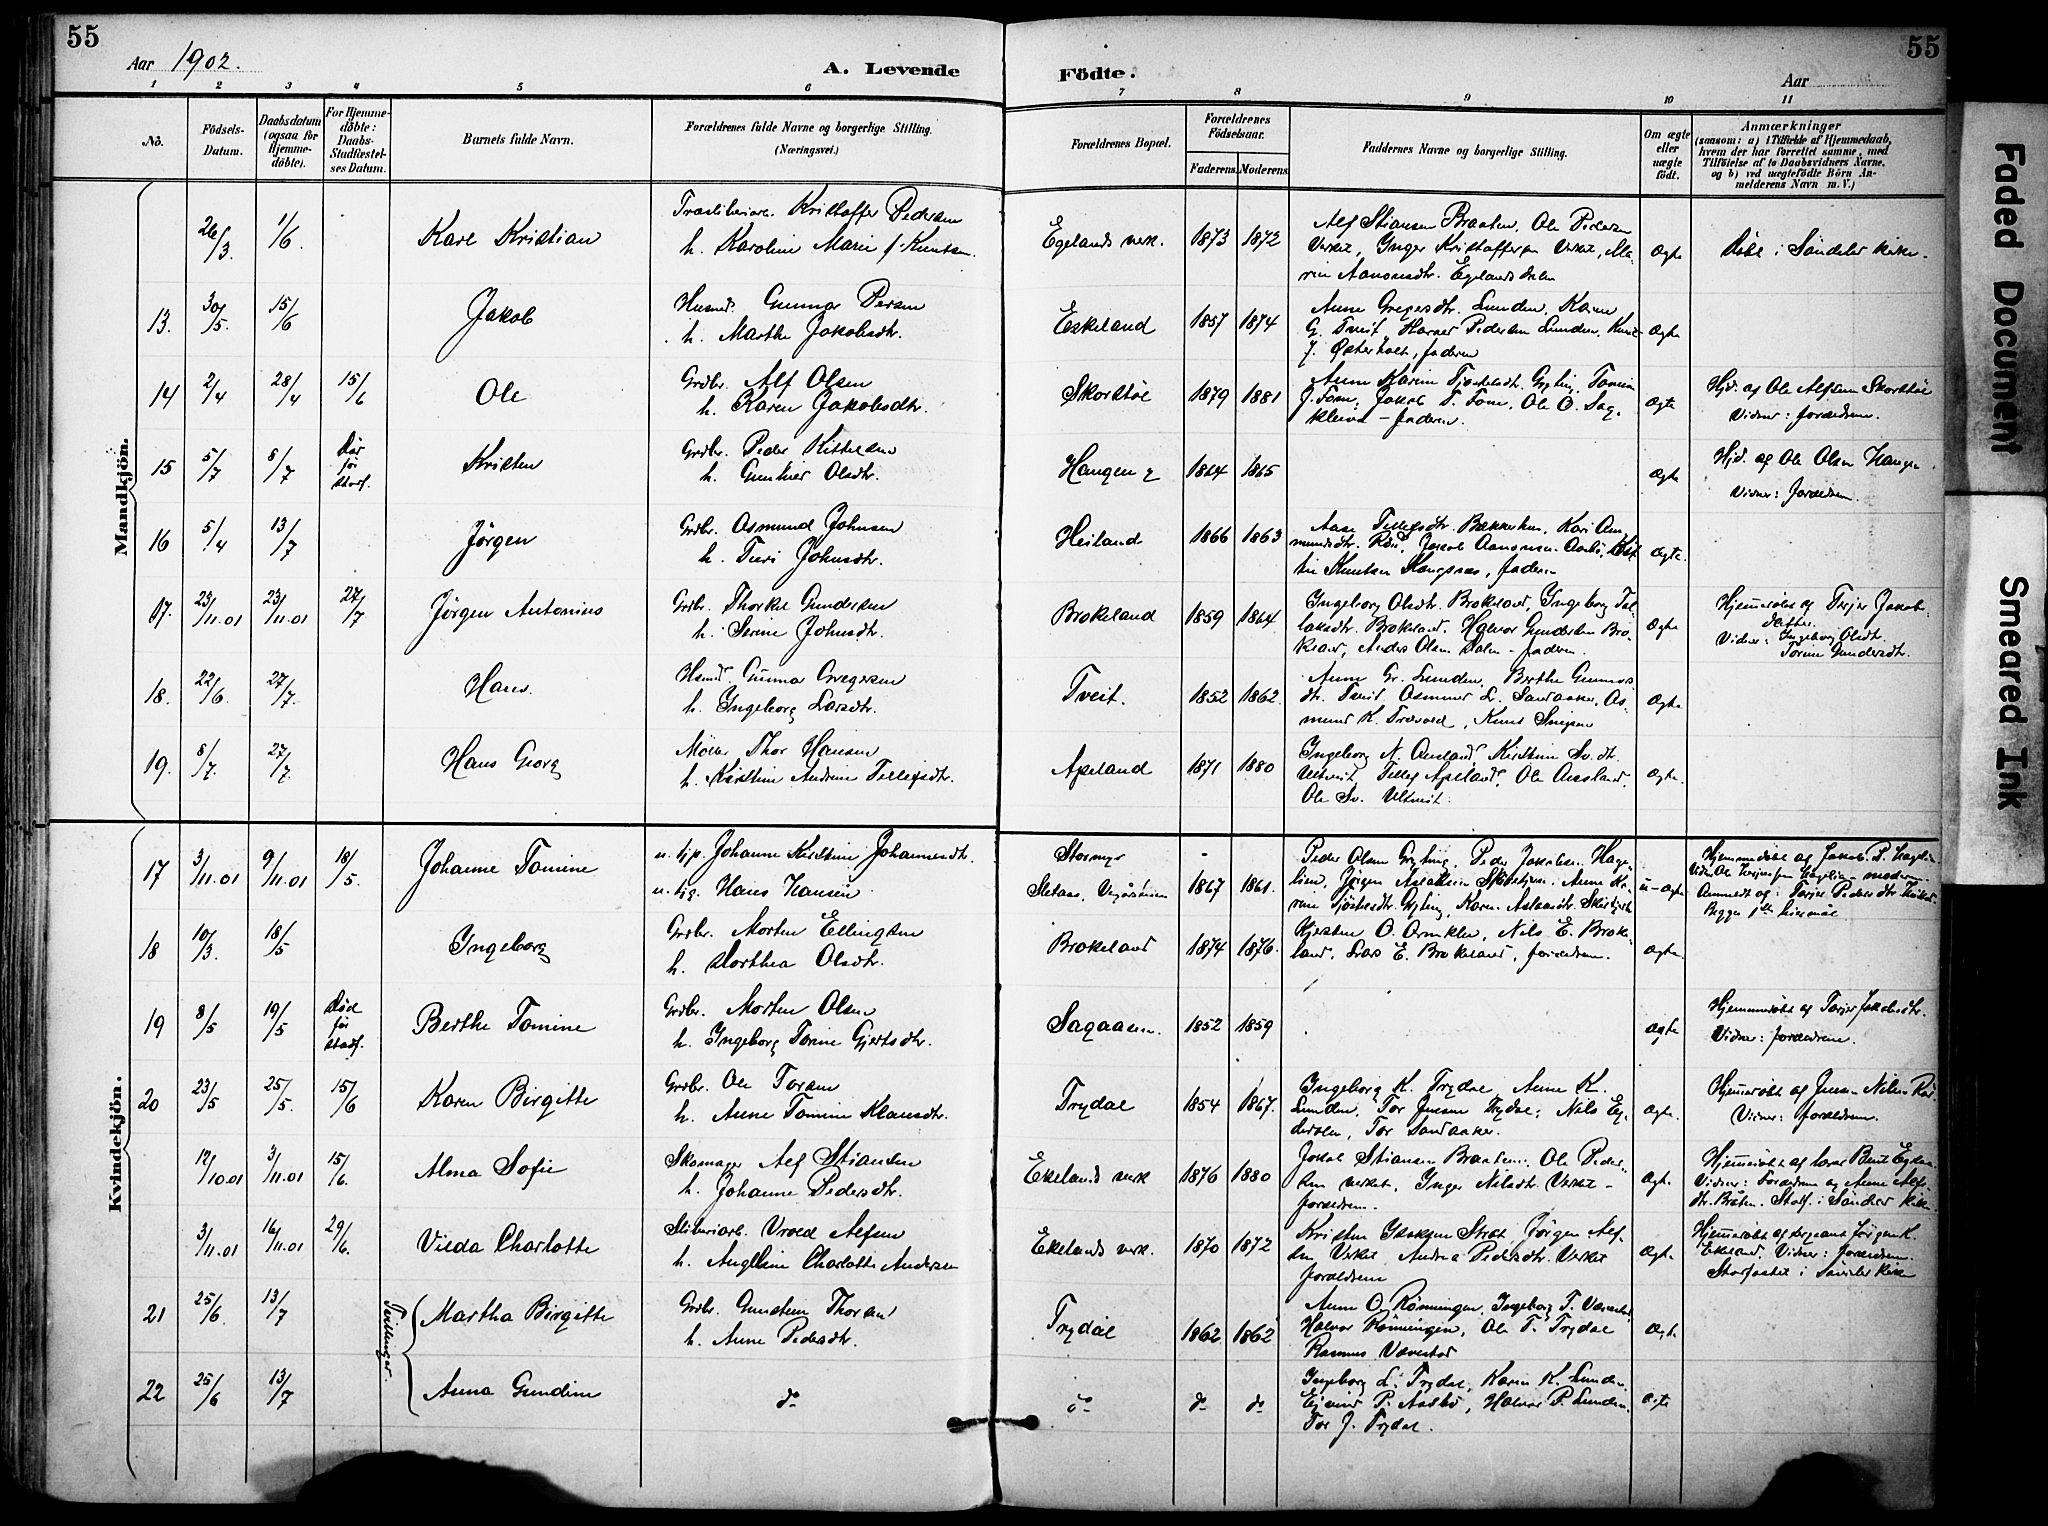 55
55
Aar 1902.
A. Levende
Födte.
Aar
1 2 3 4 5 6 7 8 9 10 11
No.
Födsels-
Datum.
Daabsdatum
(ogsaa for
Hjemme-
döbte).
For Hjemme-
döbte:
Daabs-
Stadfæstel-
ses Datum.
Barnets fulde Navn.
Forældrenes fulde Navne og borgerlige Stilling.
(Næringsvei.)
Forældrenes Bopæl.
Forældrenes
Födselsaar.
Faderens. Moderens.
Faddernes Navne og borgerlige Stilling.
Om ægte
eller
uægte
født.
Anmærkninger
(saasom: a) i Tilfælde af Hjemmedaab,
hvem der har forrettet samme, med
Tilföielse af to Daabsvidners Navne,
og b) ved uægtefödte Börn An-
melderens Navn m. V.)
Mandkjön.
26/3 1/6. Karl Kristian
Kristoffer Pedersen
h. Karoline Marie f. Knutsen.
Egelands verk. 1873 1872
Alf Stiansen Braaten, Ole Pedersen
Verket, Inger Kristoffersen Verket, Ma-
rin Aanonsdtr. Egelandsdalen
Ægte
Döbt i Söndeled kirke.
13. 30/5. 15/6 Jakob
Husmd. Gunnar Persen
h. Marthe Jakobsdtr.
Eskeland 1857 1874
Anne Gregersdtr. Lunden, Karen
G. Tveit, Pedersen Lunden, Knut
J. Østerholt, faderen
Ægte
14 2/4 28/4 15/6 Ole
Grdbr. Alf Olsen
h. Karen Jakobsdtr.
Skorstöl 1879 1881
Anne Karine
J. Fone, Jakob T. Fone, Ole O. Sag-
kleiva - faderen.
Ægte
Hjd. af Ole Alfsen Skorstöl
Vidner: forældrene.
15 5/7 8/7 Död
för
stadf.
Kristen
Grdbr. Peder Kittelsen
h. Gunhild Olsdtr.
Haugen 1864 1865
Ægte
Hjd. af Ole Olsen Haugen.
Vidner: Forældrene.
16 5/4 13/7 Jörgen
Grdbr. Osmund Johnsen
h. Turi Johnsdtr.
Heiland 1866 1863
Aase Tellefsdtr. Kari Aan-
mundsdtr. Jakob Aanonsen
Knutsen faderen
Ægte.
17. 23/11.01 23/11.01 27/7 Jörgen Antonius
Grdbr. Thorkel Gundersen
h. Serine Johnsdtr.
Brokeland 1859 1864
Ingeborg Olsdtr. Brokeland, Ingeborg Tel-
laksdtr. Brokeland, Halvor Gundersen Bro-
keland, Anders Olsen Dalen - faderen.
Ægte
Hjemmedöbt af Terjer Jakobs-
datter.
Vidner: Ingeborg Olsdtr.
Torine Gundersdtr.
18. 22/6. 27/7. Hans.
Husmd. Gunnar Gregersen
h. Ingeborg Larsdtr.
Tveit. 1852 1862
Anne Gr. Lunden, Berthe Gunnars-
dtr. Tveit, Osmund L. Sandaaker, Os-
mund K. Trævold, Knut
Ægte
19. 8/7. 27/7. Hans Georg
Möller Thor Hansen
h. Kirstine Andrine Tellefsdtr.
Apeland 1871 1880
Ingeborg N. Ausland, Kirstine Sv.dtr.
Ultveit, Tellef Apeland, Ole Ausland,
Ole Sv. Ultveit.
Ægte.
Kvindekjön.
17 3/11.01 9/11.01 18/5. Johanne Tomine
u. pige Johanne Kirstine Johannesdtr.
u. Hans Hansen
Stormyr
Vegårsheien
- 1867 1861.
Peder Olsen Gryting, Peder Jakobsen Hage-
lien, Jörgen Aslaksen
Gryting, Karen Aslaksdtr.
u-ægte
Hjemmedöbt af Jakob P. Hagelien
18 10/3. 18/5 Ingeborg
Grdbr. Morten Ellingsen
h. Dorthea Olsdtr.
Brokeland 1874 1876.
Kjersten O. Nils E. Broke-
land, Lars E. Brokeland, forældrene.
Ægte.
19 8/5 19/5 Död
för
stadf.
Berthe Tomine
Grdbr. Morten Olsen
h. Ingeborg Torine Gjertsdtr.
Sagaasen. 1852 1859
Ægte
Hjemmedöbt af Torjer Jakobsdtr.
Vidner: forældrene.
20 23/5 25/5. 15/6 Karen Birgitte
Grdbr. Ole Torsen
h. Anne Tomine Klausdtr.
Trydal 1854 1867.
Ingeborg K. Trydal, Anne K.
Lunden, Tor Jensen Trydal, Nils Eg-
dedalen, Tor Sandaaker.
Ægte.
Hjemmedöbt af Jens Nilsen
Vidner: forældrene.
12/10.01 3/11.01 15/6. Alma Sofie
Skomager Alf Stiansen
h. Johanne Pedersdtr.
Ekelands verk 1876 1880
Jakob Stiansen Braaten, Ole Peder-
sen verket, Inger Nilsdtr. Verket -
forældrene.
Ægt.
Hjemmedöbt af
Vidner: Forældrene og Anne Alfs-
dtr. Bråten. Stadf. i Sönded kirke
3/11.01 16/11.01 29/6. Vilda Charlotte
Sliberiarb. Vrold Alfsen
h. Angeline Charlotte Andersen
Ekelands verk. 1870 1872
Kristen Isaksen Strat, Jörgen Alf-
sen Verket, Andrea Pedersdtr. Verket
forældrene
Ægt.
Hjemmedöbt af sergeant Jörgen K.
Ekeland. Vidner: Forældrene.
Stadfæstet i Söndeled kirke
Tvillinger.
21 25/6. 13/7 Martha Birgitte
Grdbr. Gunstein Thorsen
h. Anne Pedersdtr.
Trydal 1862 1862
Anne O. Rönningen, Ingeborg T. Vævestad
Halvor Rönningen, Ole T. Trydal
Rasmus Vævestad
Ægt.
22 25/6 13/7 Anna Gundine
do
do do do
Ingeborg L. Trydal, Karen K. Lunden,
Eivind P. Aasbö, Halvor P. Lunden,
Tor J. Trydal.
Ægte
Faded Document
Smeared Ink